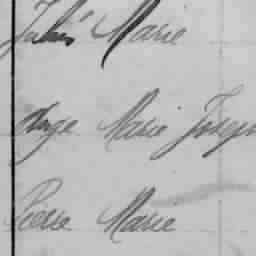 Julien Marie
Ange Marie Joseph
Pierre Marie